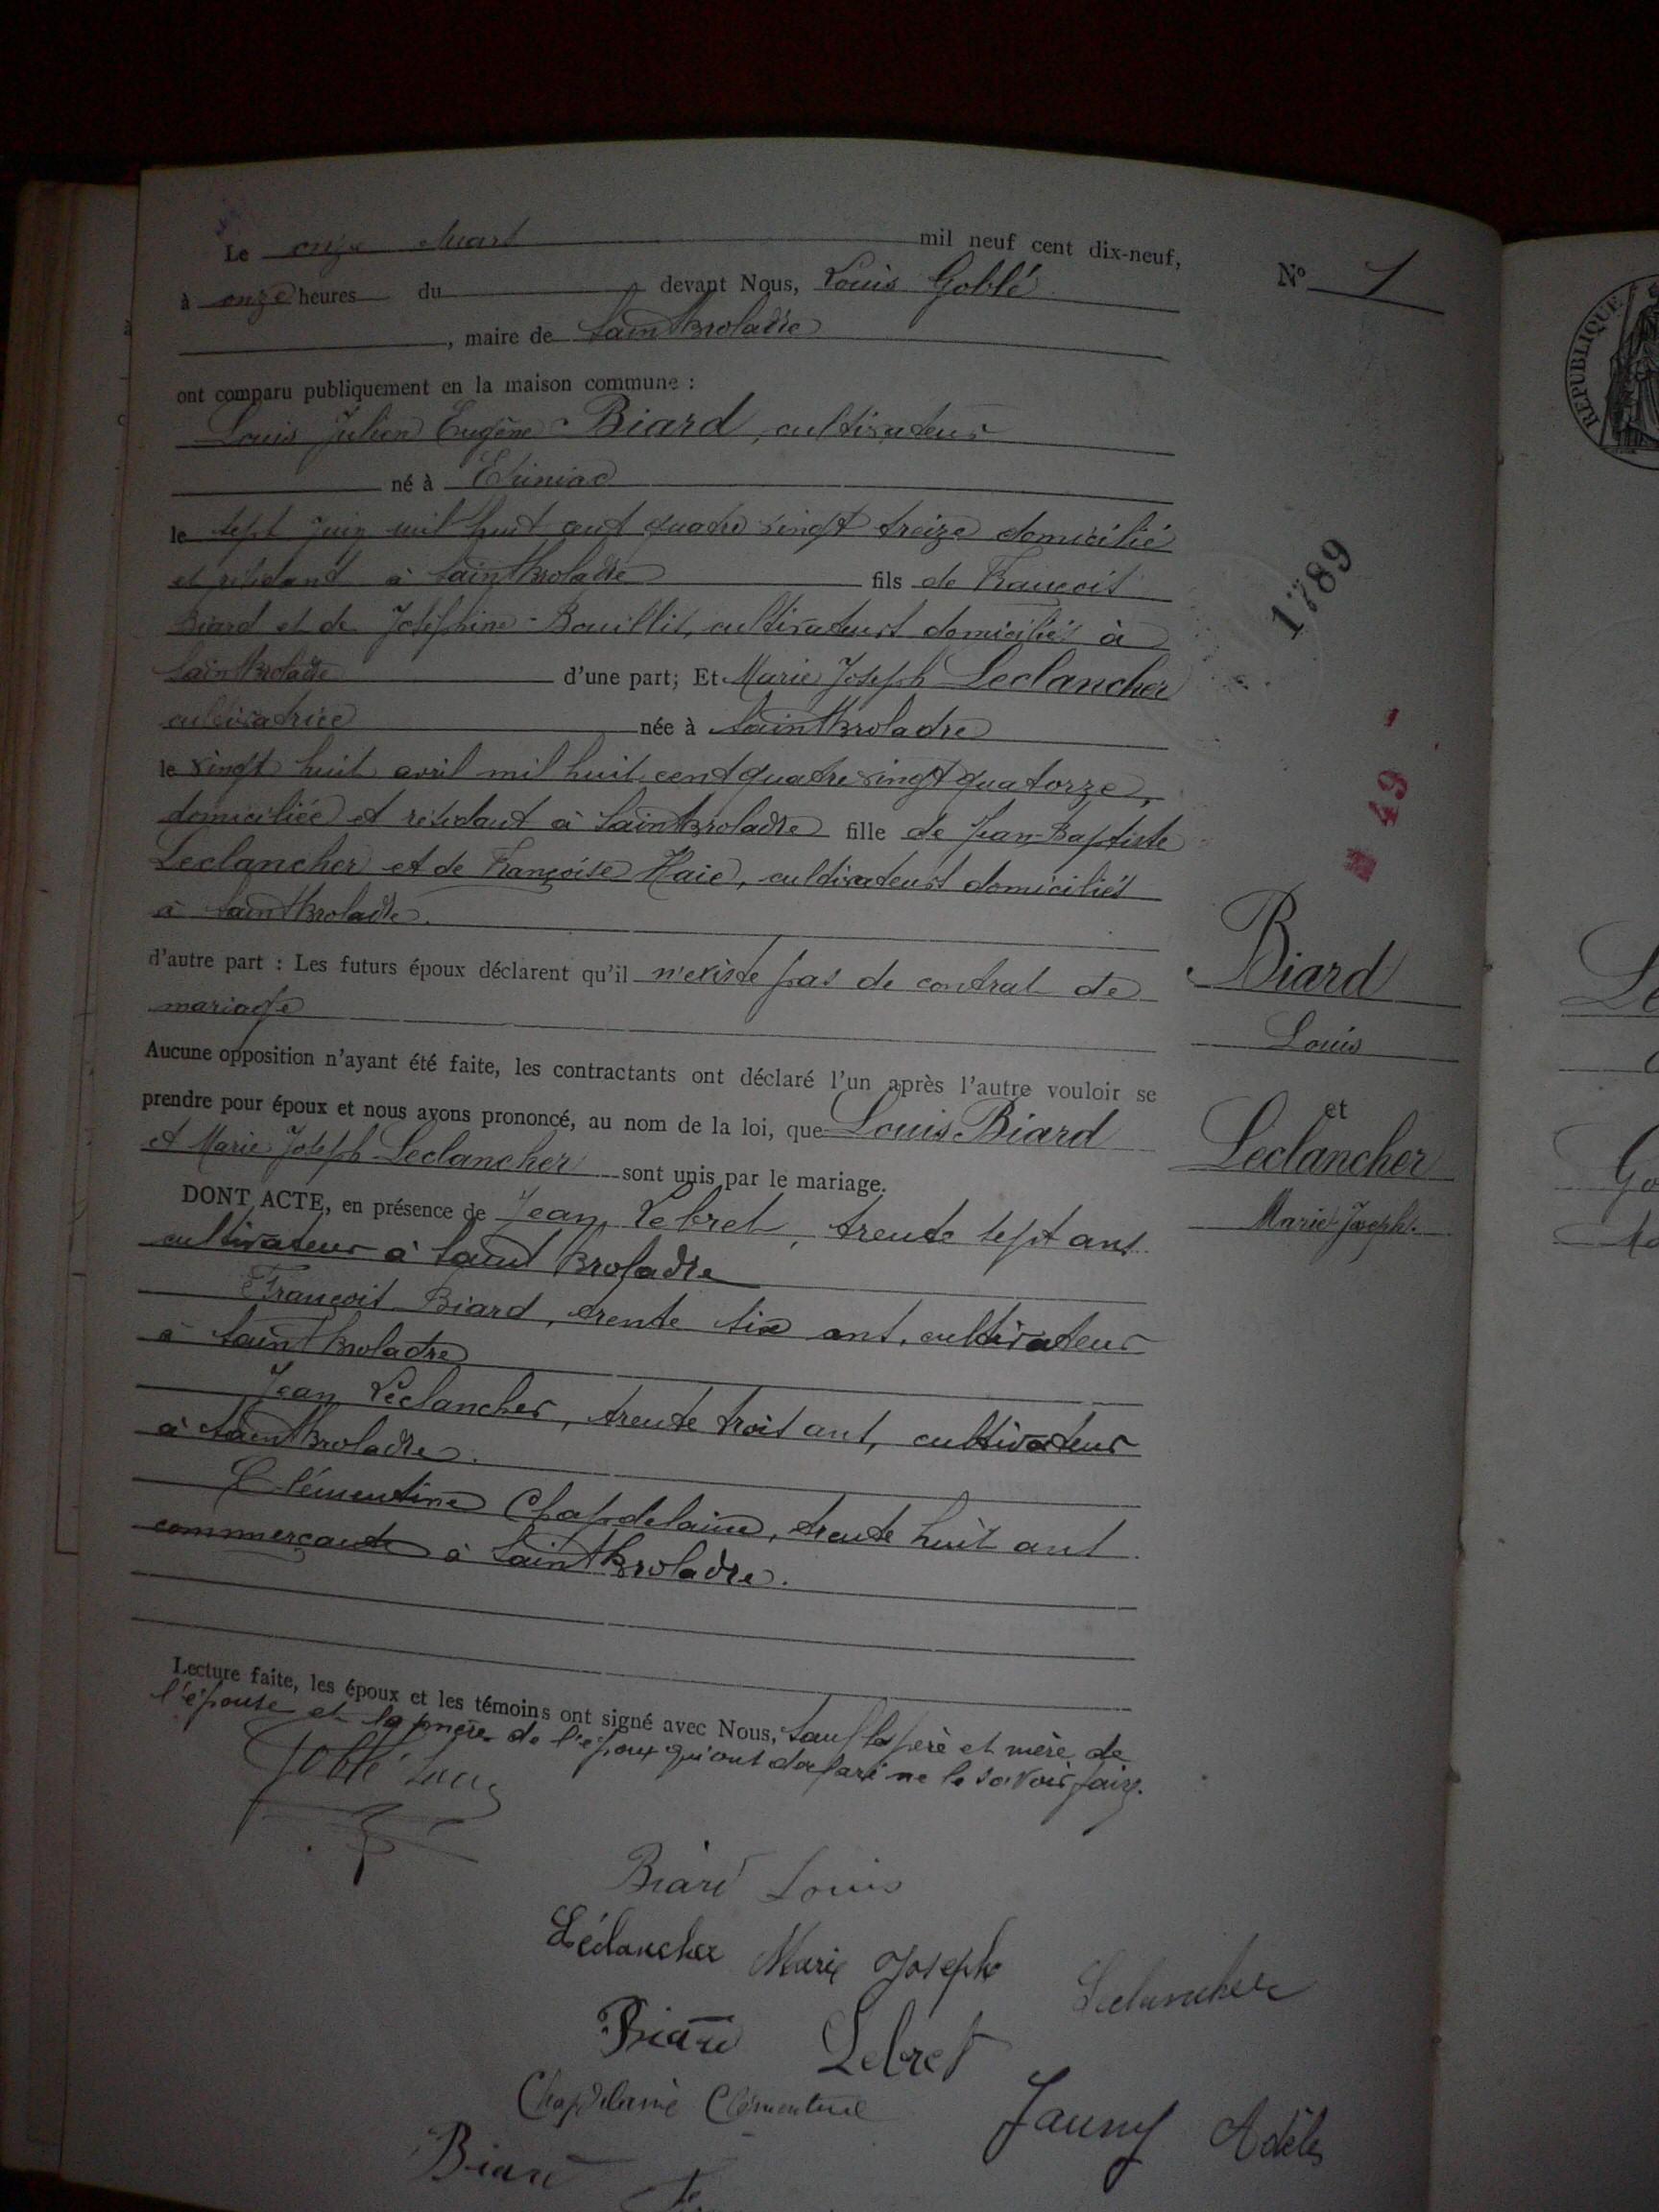 Le onze Mars mil neuf cent dix-neuf,
à onze heures du devant Nous, Louis Goblé
, maire de Saint Broladre
ont comparu publiquement en la maison commune :
Louis Julien Eugène Biard, cultivateur
né à Epiniac
le sept juin mil huit cent quatre vingt treize domicilié
et résidant à Saint Broladre fils de François
Biard et de Joséphine Bouillis, cultivateurs domiciliés à
Saint Broladre d'une part; Et Marie Joseph Leclancher
cultivatrice née à Saint Broladre
le vingt huit avril mil huit cent quatre vingt quatorze,
domiciliée et résidant à Saint Broladre fille de Jean-Baptiste
Leclancher et de Françoise Haie, cultivateurs domiciliés
à Saint Broladre.
d'autre part : Les futurs époux déclarent qu'il n'existe pas de contrat de
mariage
Aucune opposition n'ayant été faite, les contractants ont déclaré l'un après l'autre vouloir se
prendre pour époux et nous avons prononcé, au nom de la loi, que Louis Biard
et Marie Joseph Leclancher sont unis par le mariage.
DONT ACTE, en présence de Jean Lebret, trente sept ans
cultivateur à Saint Broladre
François Biard, trente six ans, cultivateur
à Saint Broladre
Jean Léclancher, trente trois ans, cultivateur
à Saint Broladre.
Clémentine Chapdelaine, trente huit ans
commerçante à Saint Broladre.
Lecture faite, les époux et les témoins ont signé avec Nous, sauf les père et mère de
l'épouse et la mère de l'époux qui ont déclaré ne le savoir faire.
Goblé Louis
Biard Louis
Léclancher Marie Joseph
Leclancher
Biard Lebret
Chapdelaine Clémentine
Jauny Adèle
Biard
N° 1
1789
49
Biard
Louis
et
Leclancher
Marie-Joseph.
REPUBLIQUE